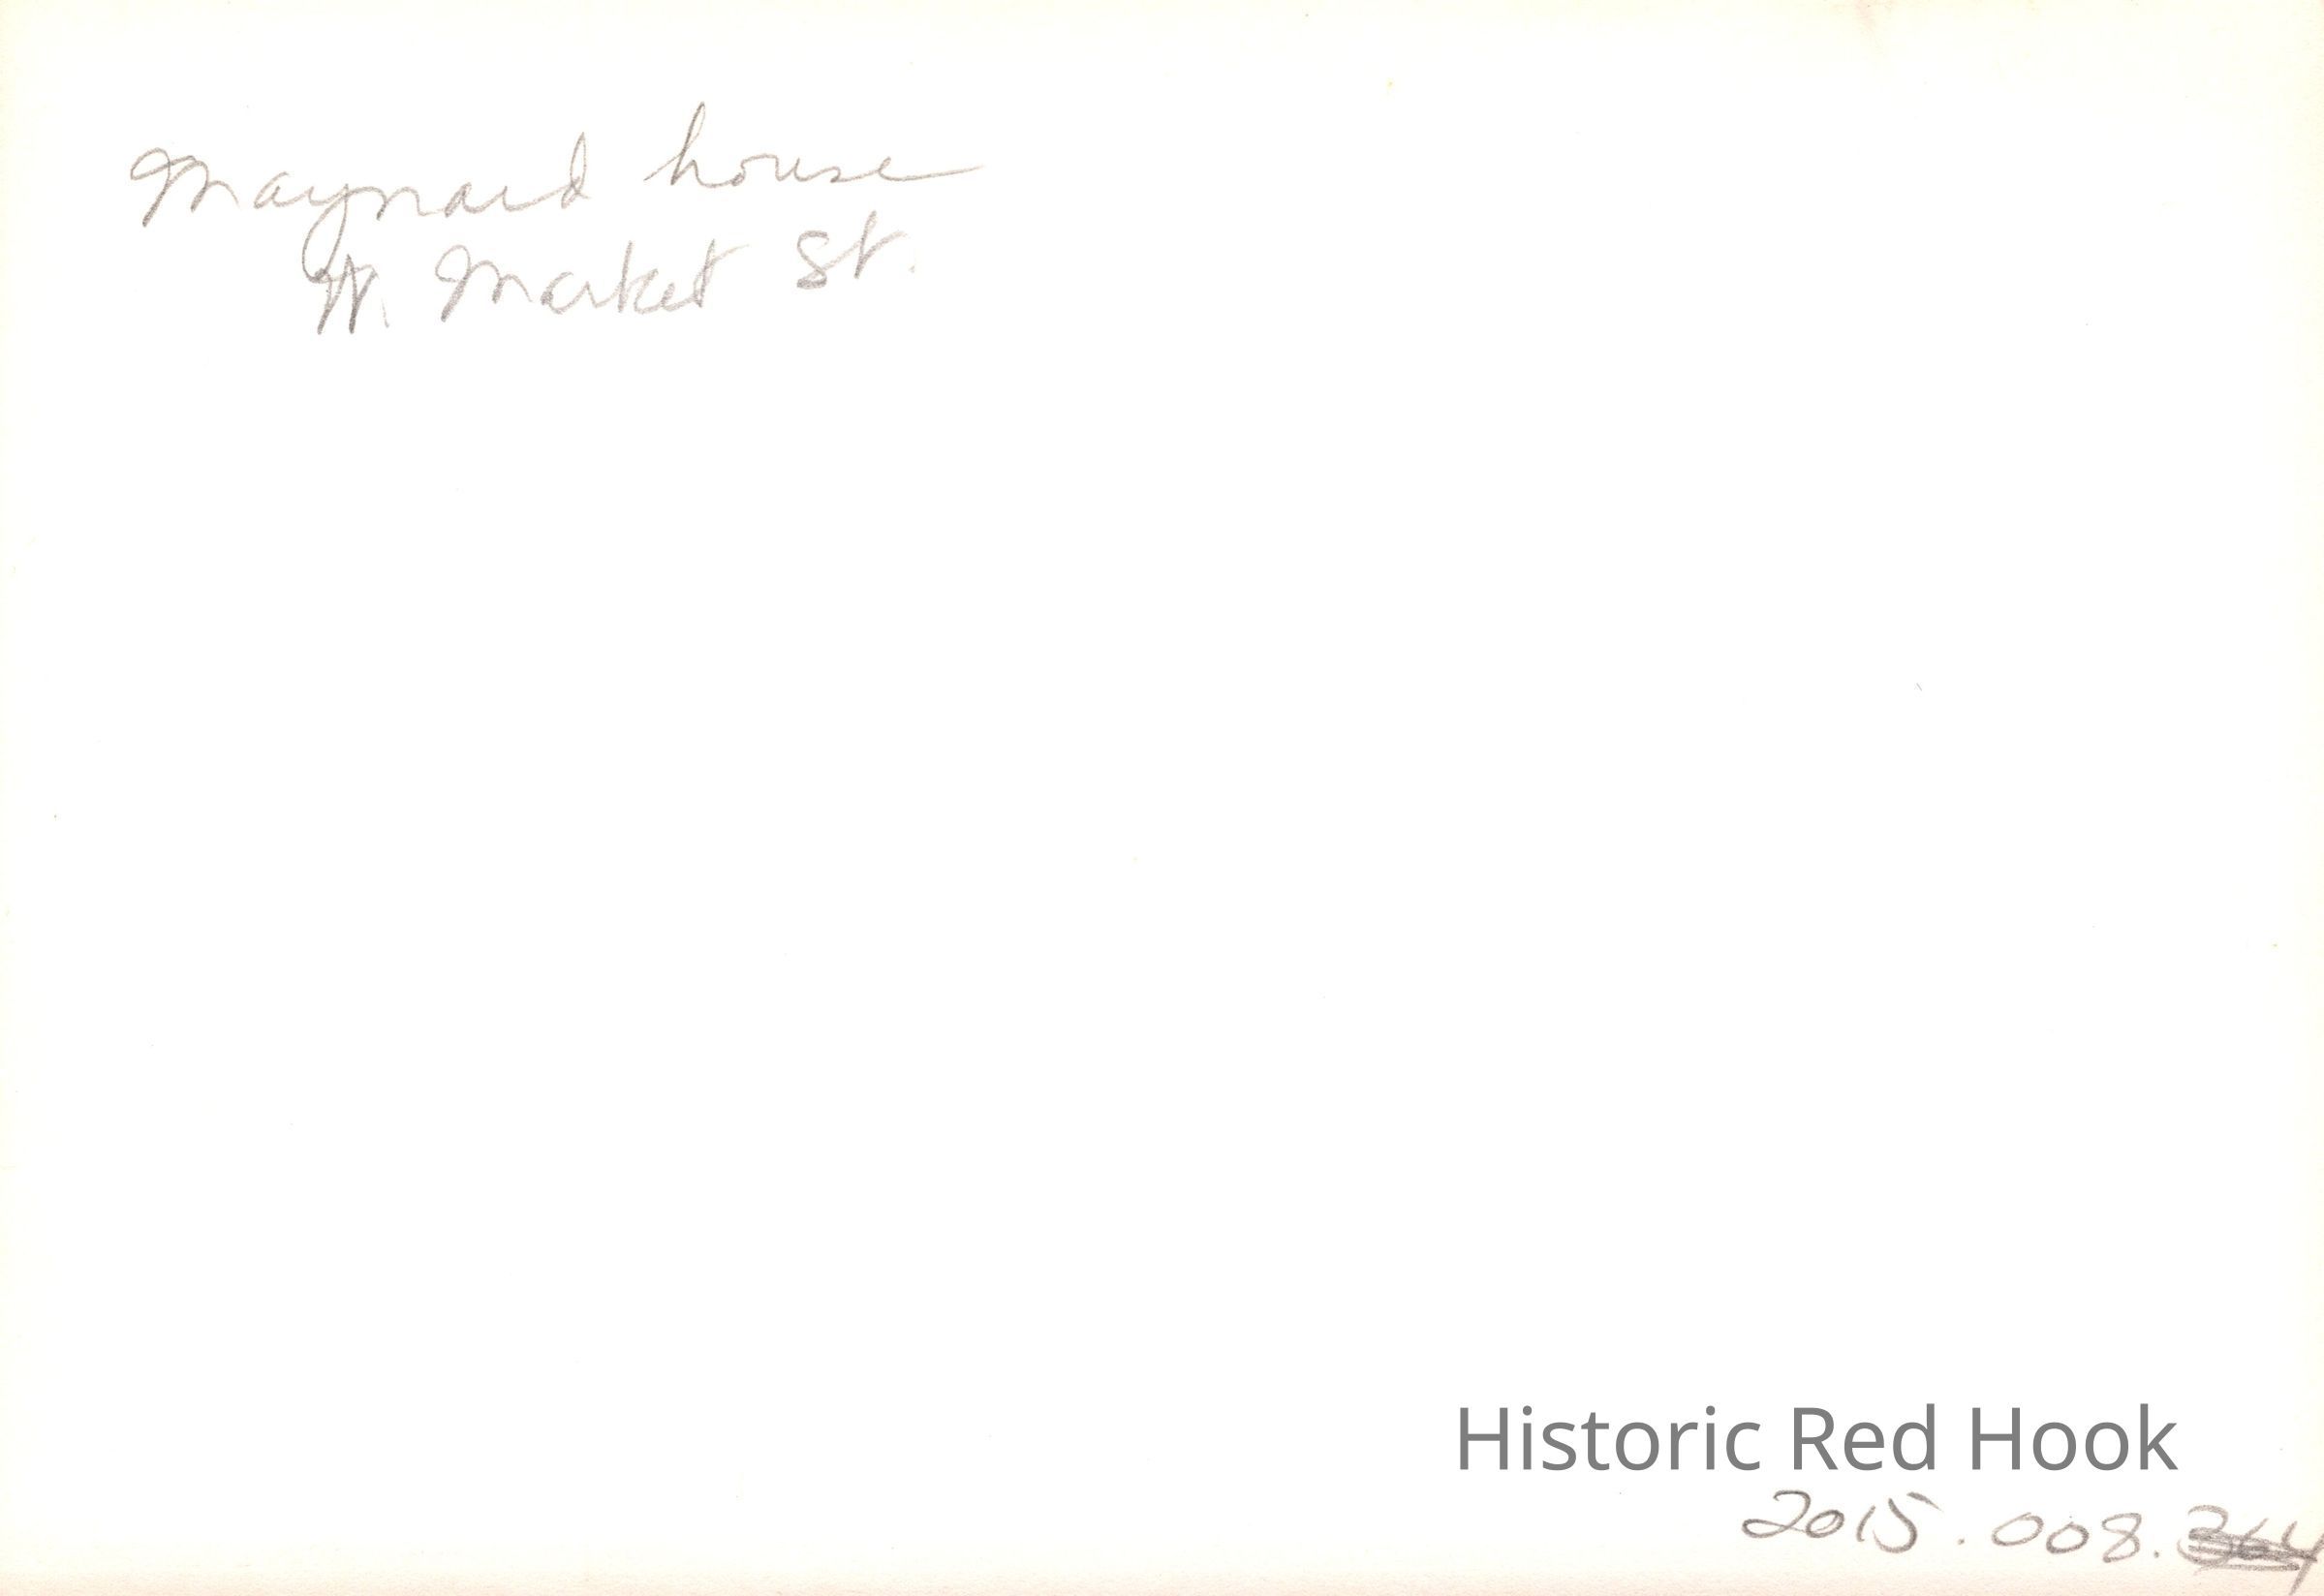 Maynard house
W. Market St.
Historic Red Hook
2015.008.364